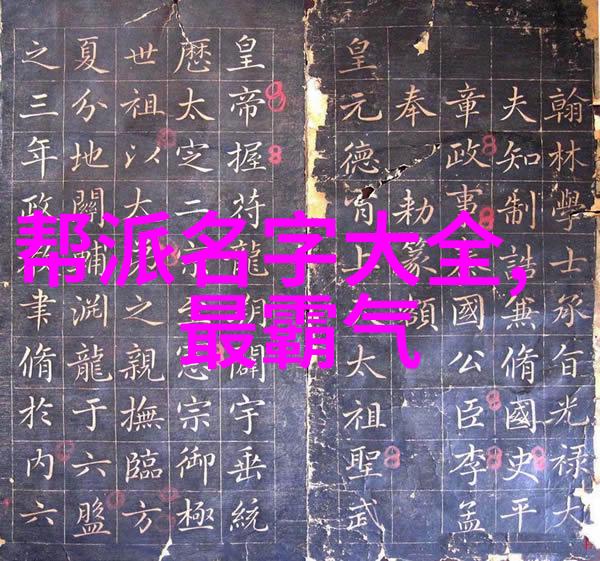 翰林學士承旨光祿大
夫知制誥兼脩國史平
章政事國公臣李孟
奉勅篆額
皇元德上太祖聖武
皇帝握符龍朔闢宇垂統
厯太定二宗憲宗御極
世祖以大之親撫臨方
夏分地關輔淵龍于六盤
之三年政聿脩於內六
帮派名字大全,
最霸气